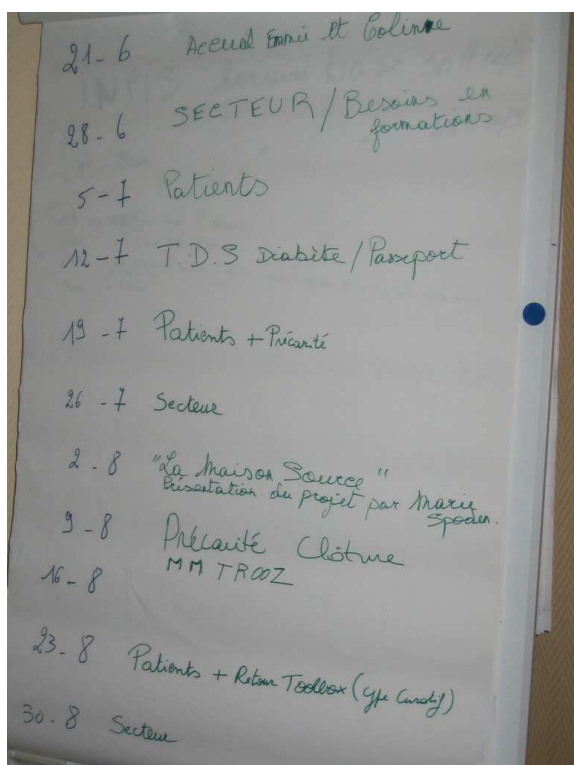 21-6 Accueil Emmi et Coline
28-6 SECTEUR / Besoins en
formations
5-7 Patients
12-7 T.D.S Diabète / Passeport
19-7 Patients + Précarité
26-7 Secteur
2-8 "La Maison Source"
Présentation du projet par Marie
Spoden.
9-8 Précarité Clôture
MM TROOZ
16-8
23-8 Patients + Retour Toolbox (
30-8 Secteur